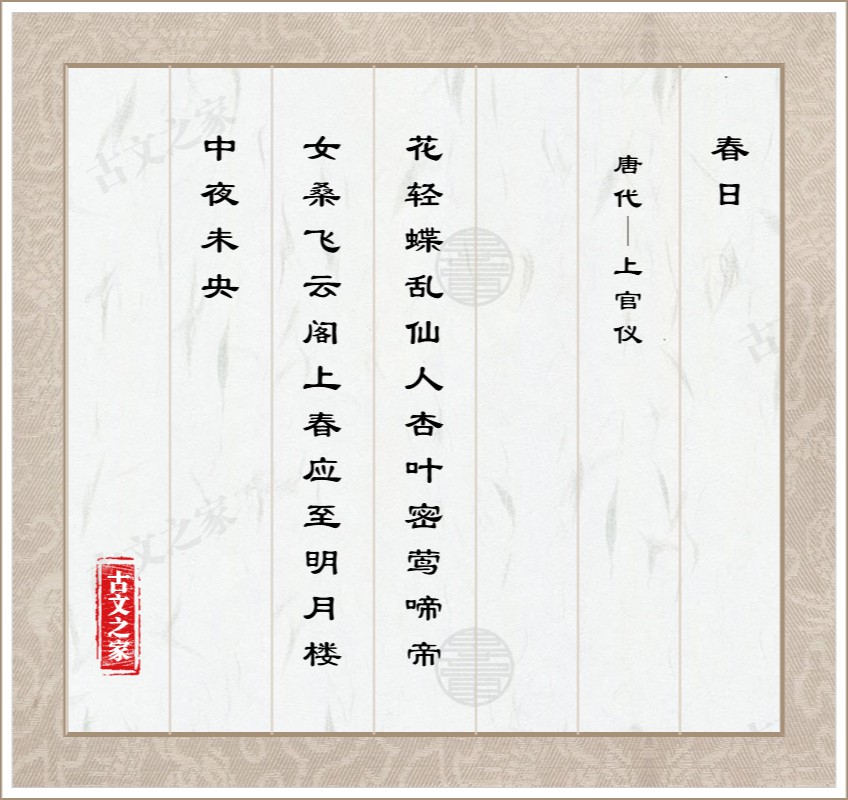 春日
唐代—上官仪
花轻蝶乱仙人杏叶密莺啼帝
女桑飞云阁上春应至明月楼
中夜未央
古文之家
古文之家
古文之家